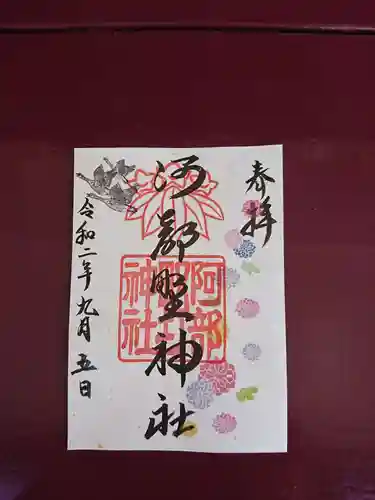 奉拝
阿部野神社
阿部野神社
令和二年九月五日